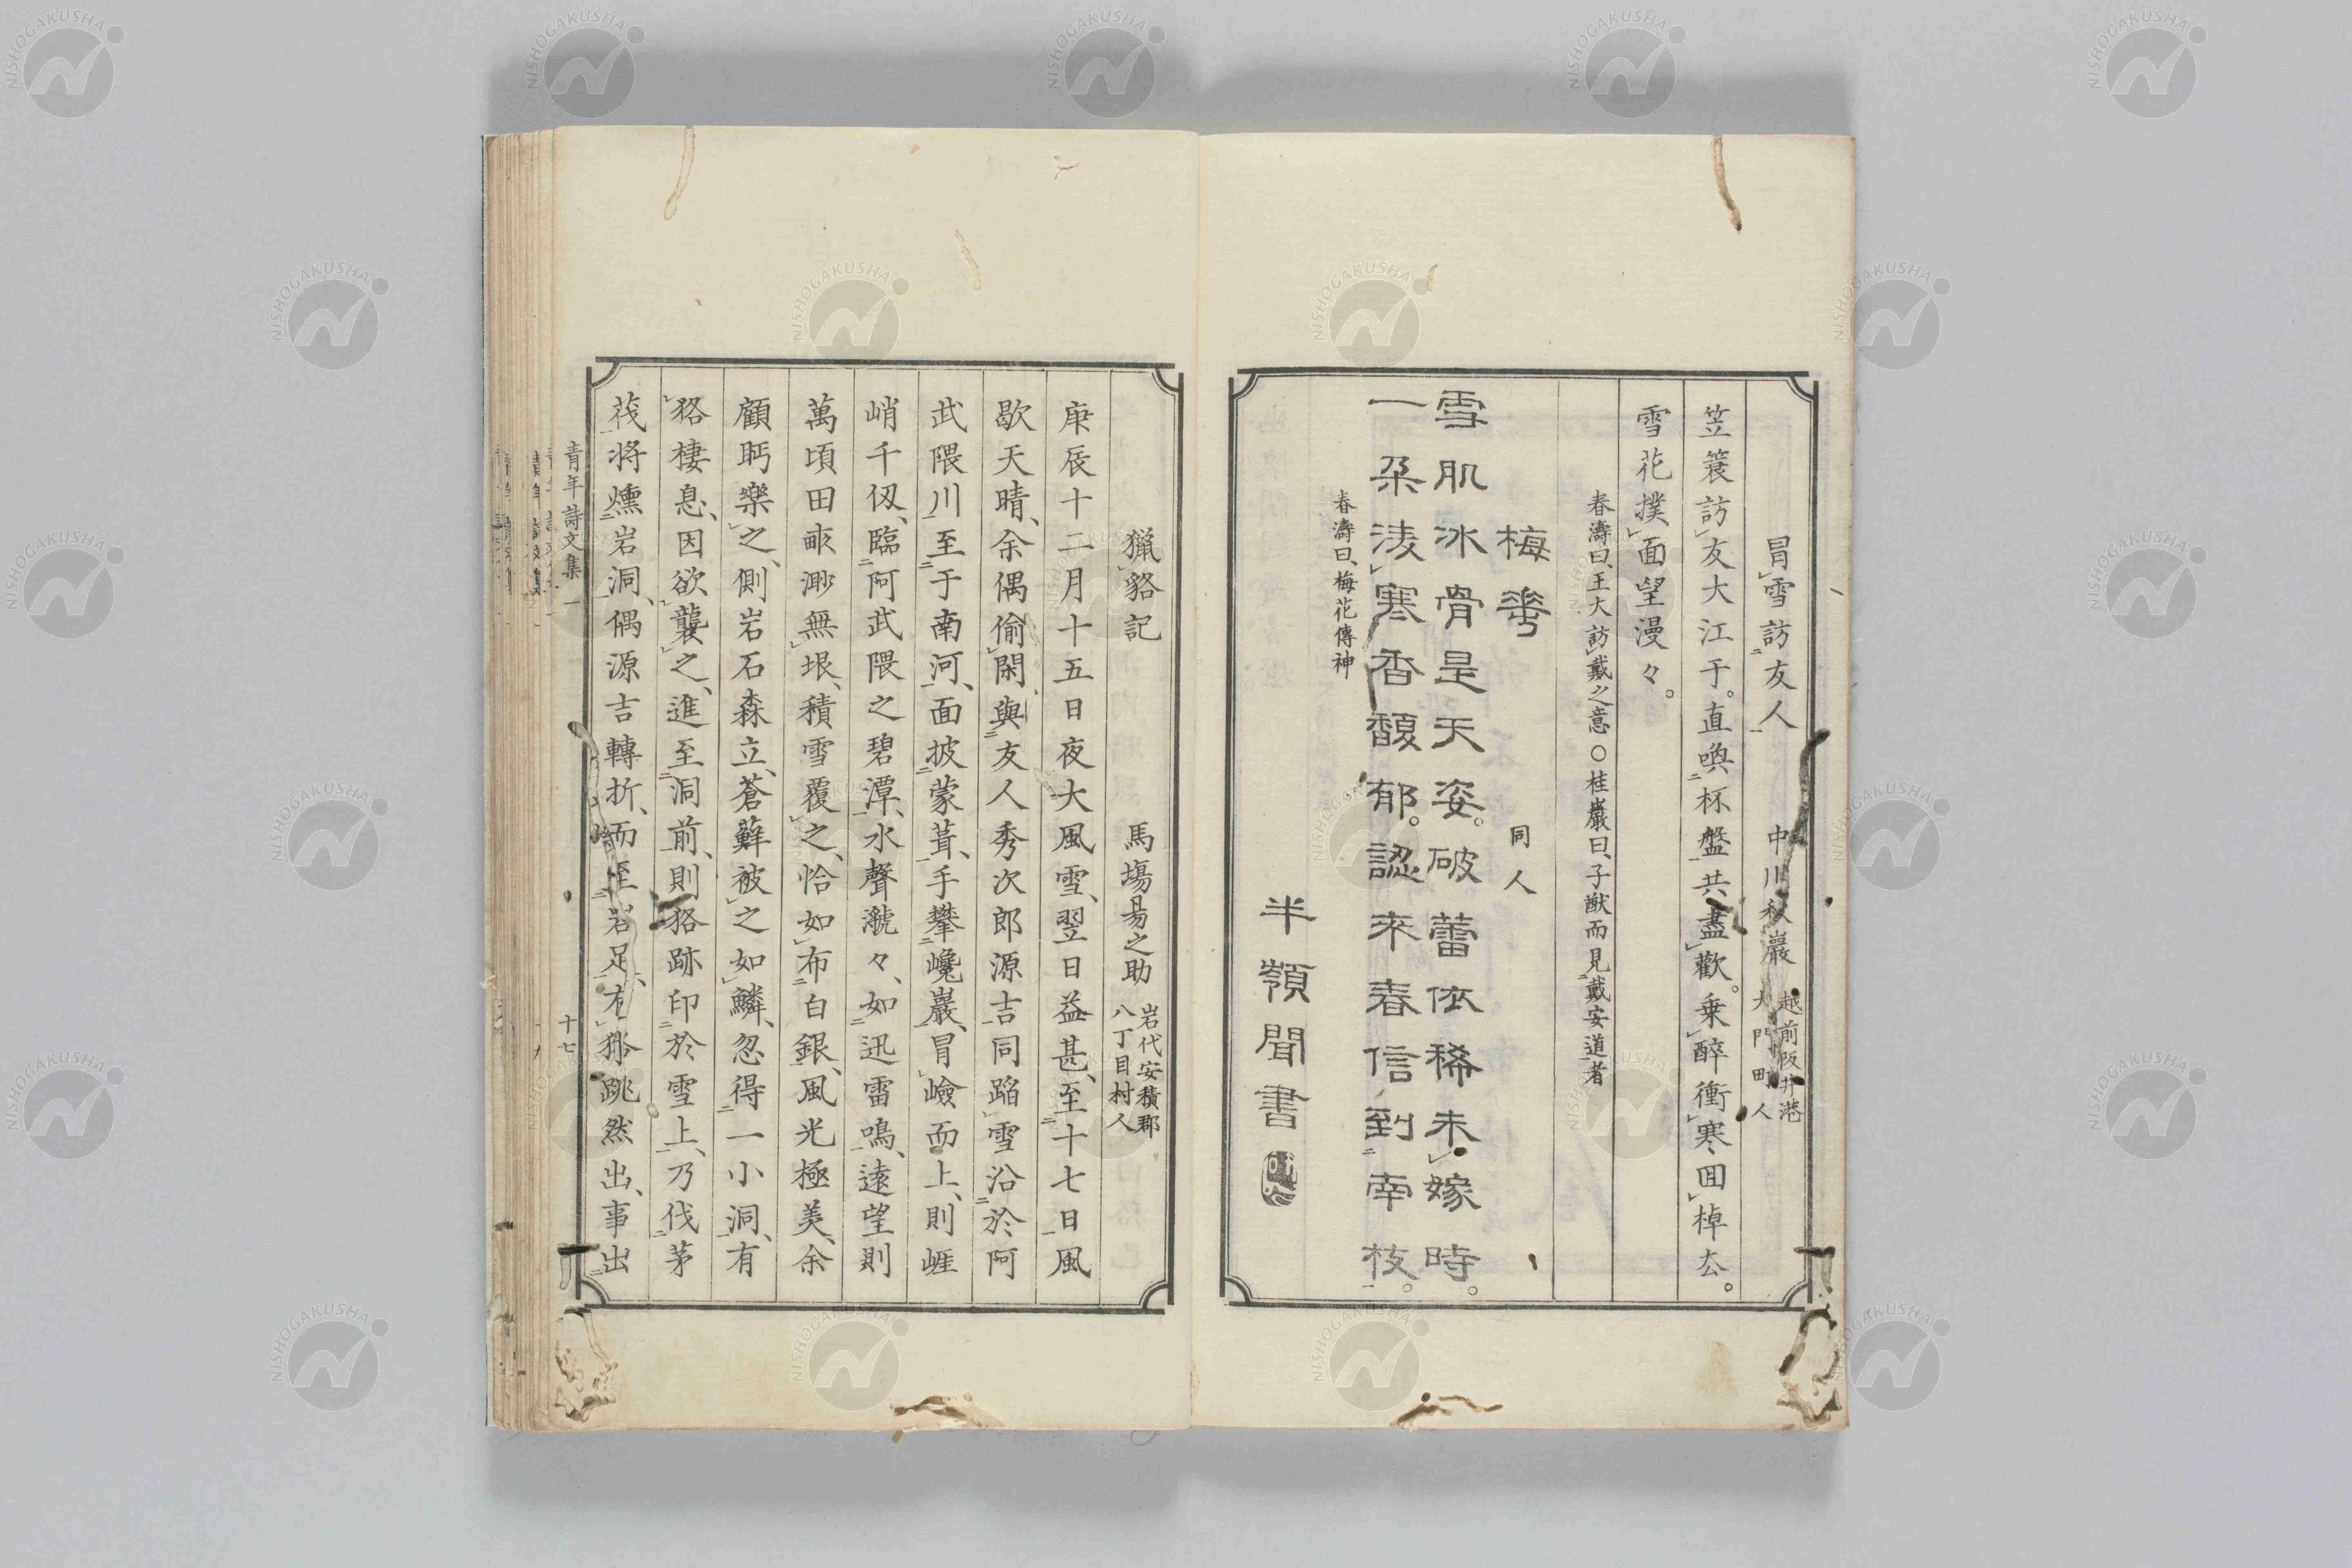 冐雪訪友人 中川秋巖 越前阪井港
大門町人
笠簑訪友大江干。直喚杯盤共盡歡。乗醉衝寒囬棹厺。
雪花撲面望漫々。
春濤曰、王大訪戴之意〇桂巖曰、子猷而見戴安道者
梅華 同人
雪肌冰骨是天姿。破蕾依稀未嫁時。
一朶淩寒香馥郁。認來春信到南枝。
春濤曰、梅花傳神
半嶺聞書
猟貉記 馬塲易之助 岩代安積郡
八丁目村人
庚辰十二月十五日夜大風雪、翌日益甚、至十七日風
歇天晴、余偶偷閑、與友人秀次郎源吉同蹈雪沿於阿
武隈川至于南河、面披蒙葺、手攀巉巖、冒嶮而上、則崕
峭千仭、臨阿武隈之碧潭、水聲㶁々、如迅雷鳴、遠望則
萬頃田畝渺無垠、積雪覆之、恰如布白銀、風光極美、余
顧眄樂之、側岩石森立、蒼蘚被之如鱗、忽得一小洞、有
狢棲息、因欲襲之、進至洞前、則狢跡印於雪上、乃伐茅
茷將燻岩洞、偶源吉轉折、而至岩足、有狢跳然出、事出
青年詩文集 一 十七